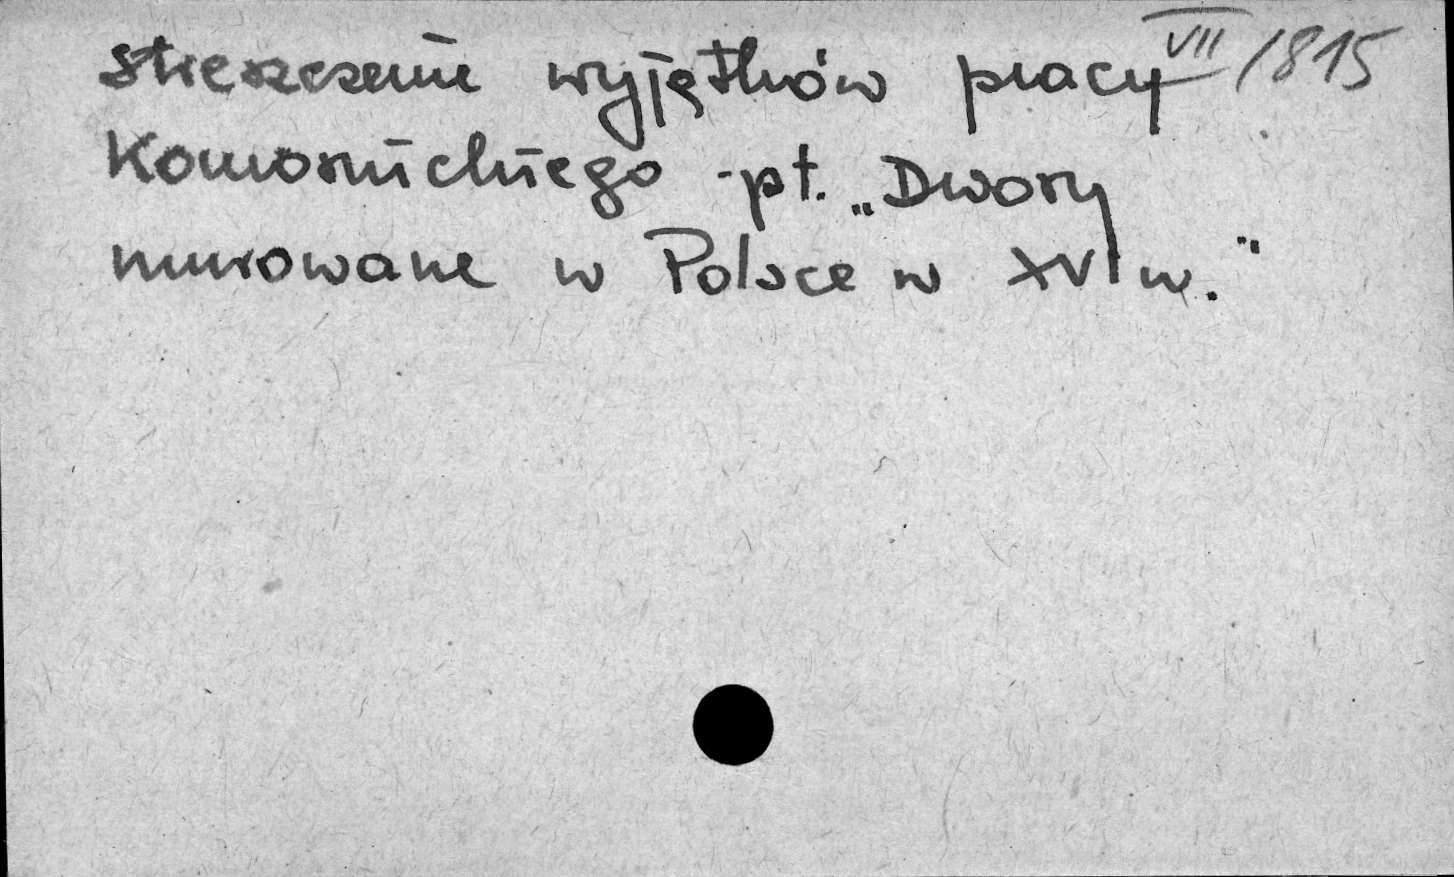 VII/1815
streszczenie wyjątków pracy
Komornickiego -pt. „Dwory
murowane w Polsce w XVI w."